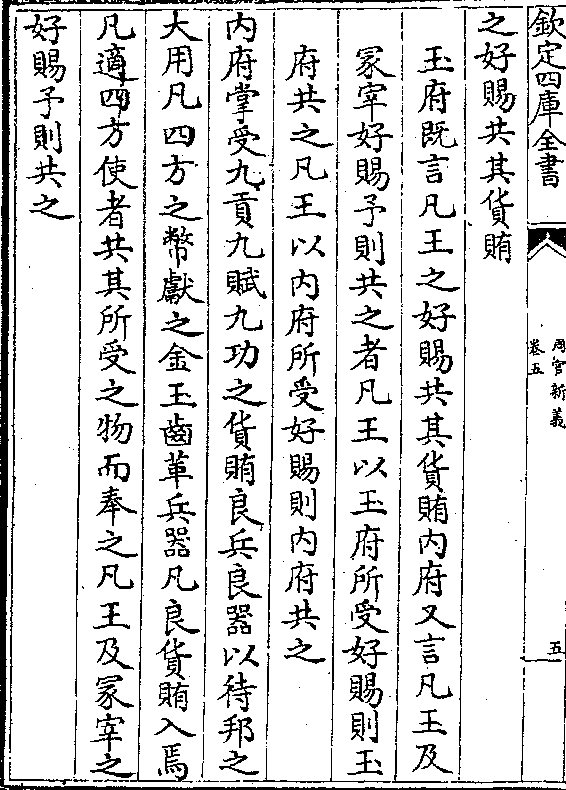 欽定四庫全書
周官新義
卷五
五
之好賜共其貨賄
玉府既言凡王之好賜共其貨賄内府又言凡王及
冢宰好賜予則共之者凡王以玉府所受好賜則玉
府共之凡王以内府所受好賜則内府共之
内府掌受九貢九賦九功之貨賄良兵良器以待邦之
大用凡四方之幣獻之金玉齒革兵器凡良貨賄入焉
凡適四方使者共其所受之物而奉之凡王及冢宰之
好賜予則共之